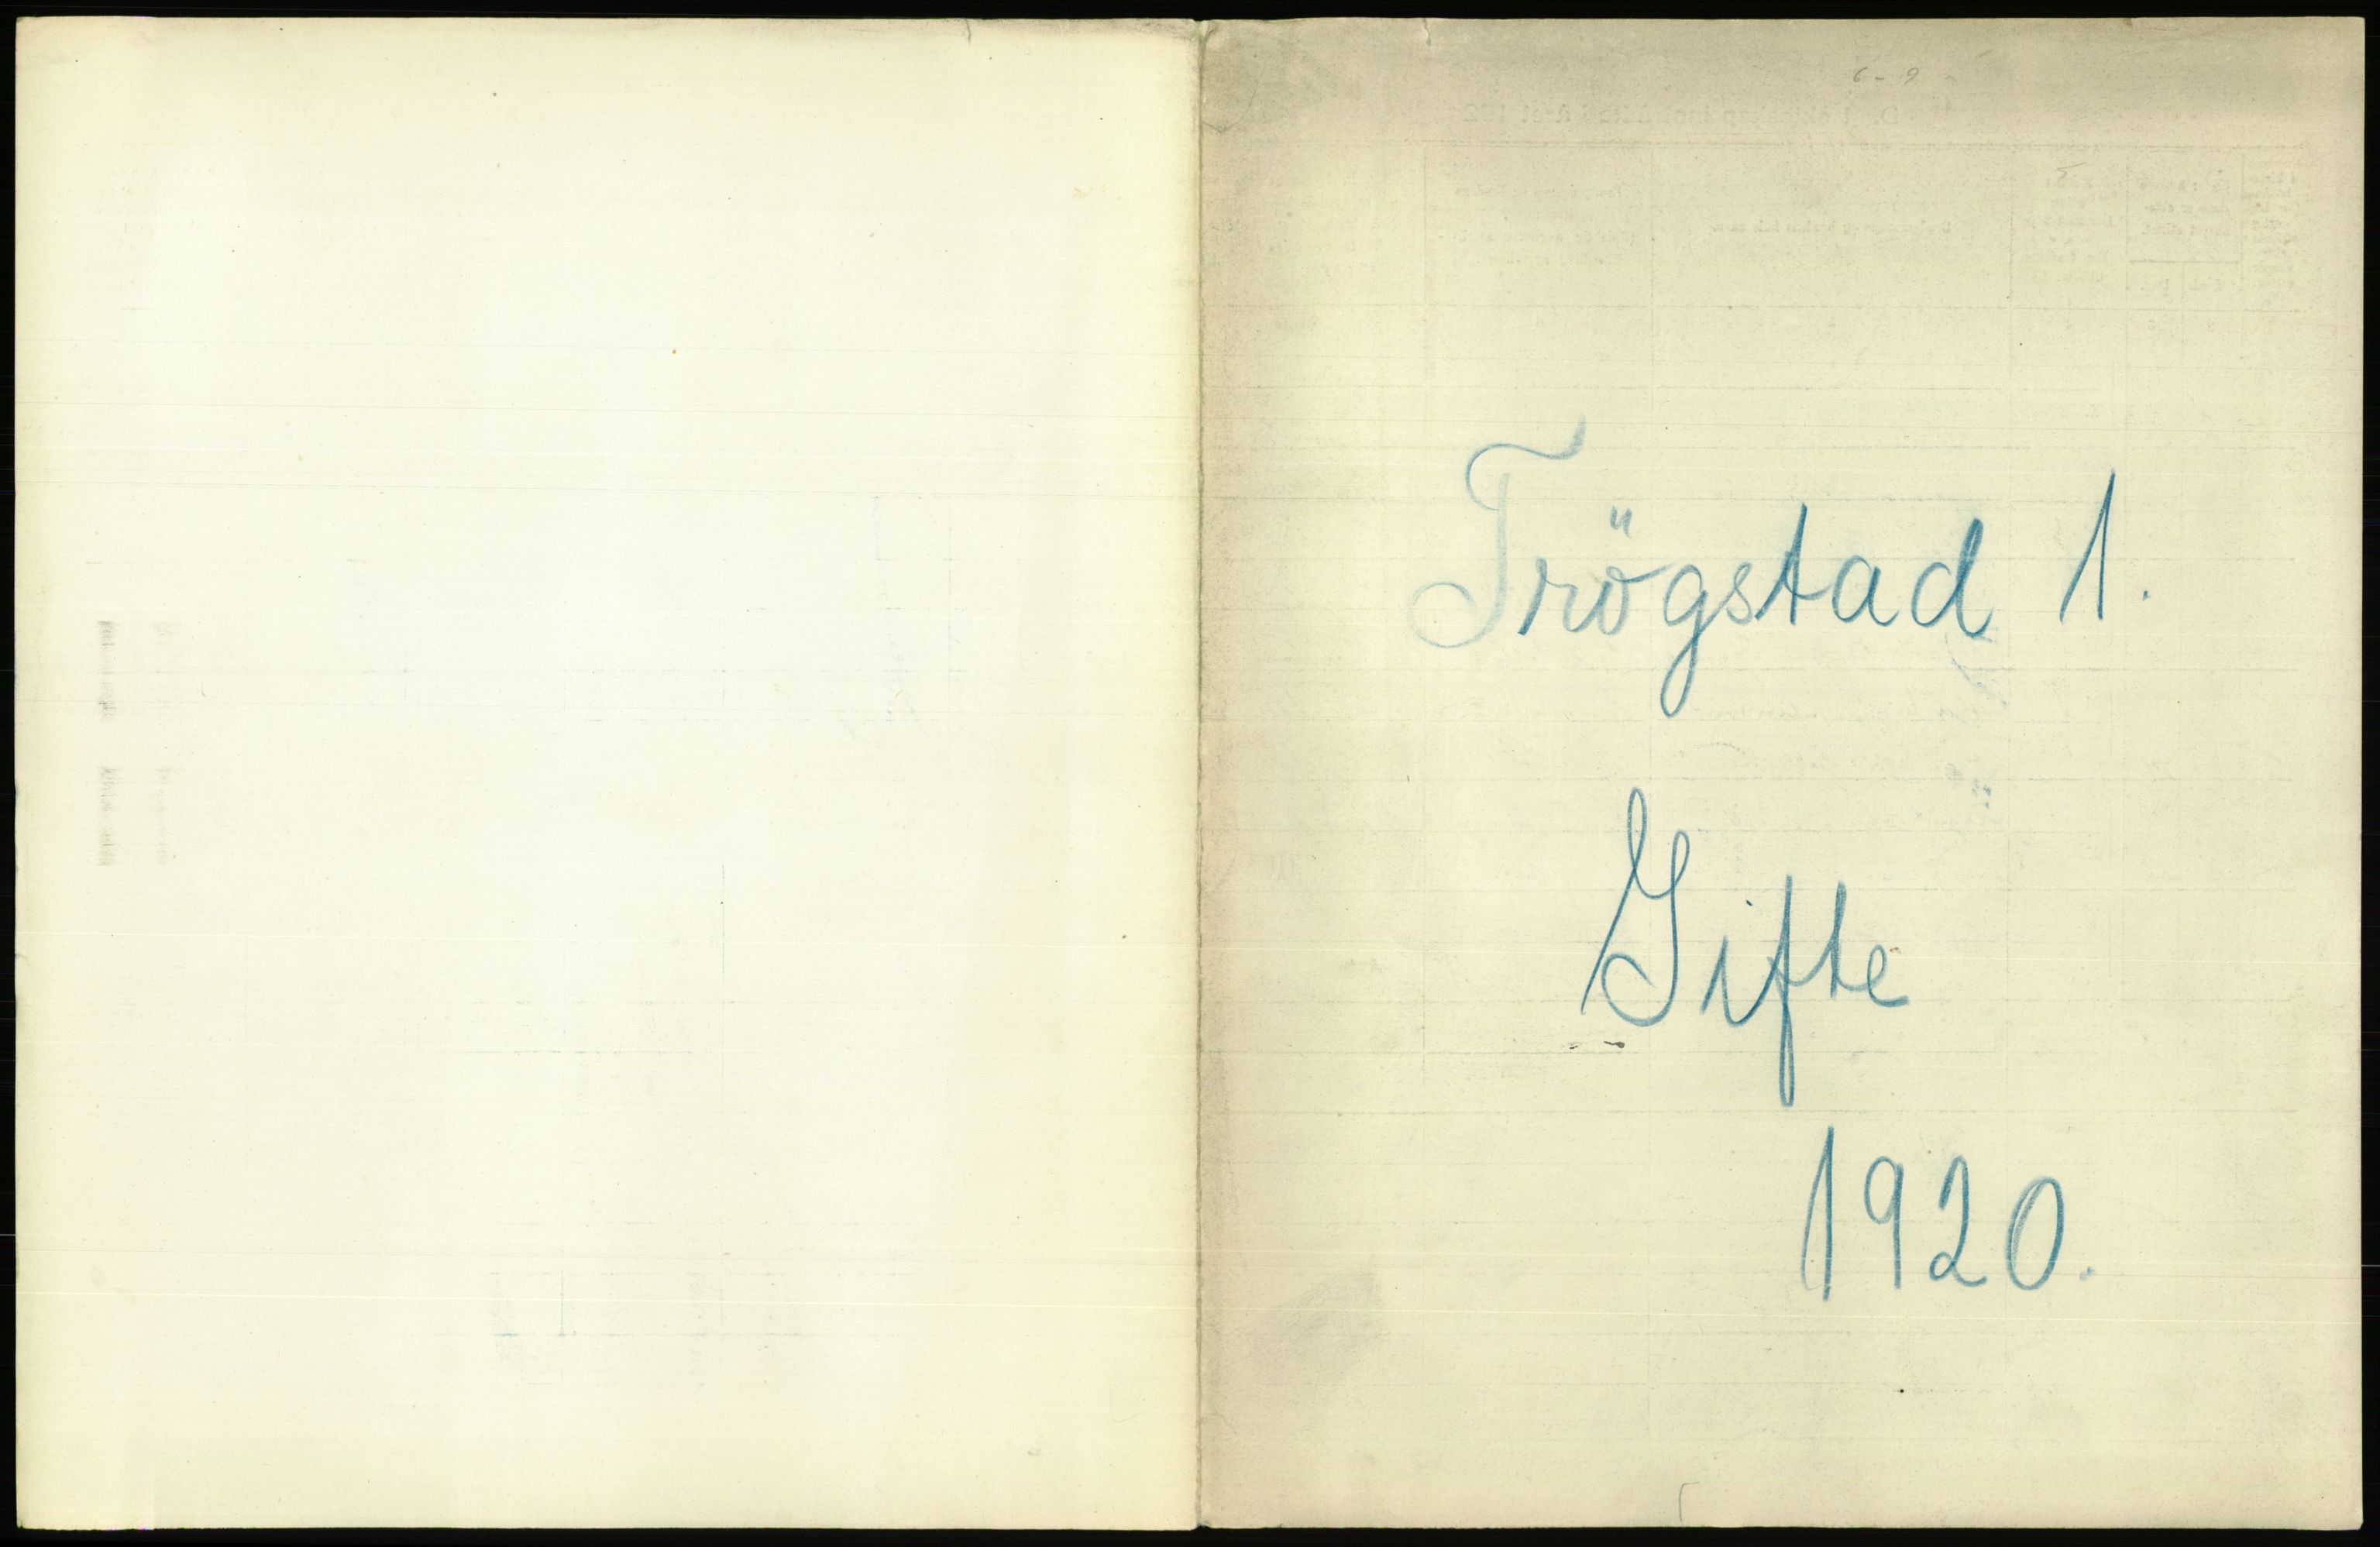 6-9
Trögstad 1.
Gifte
1920.